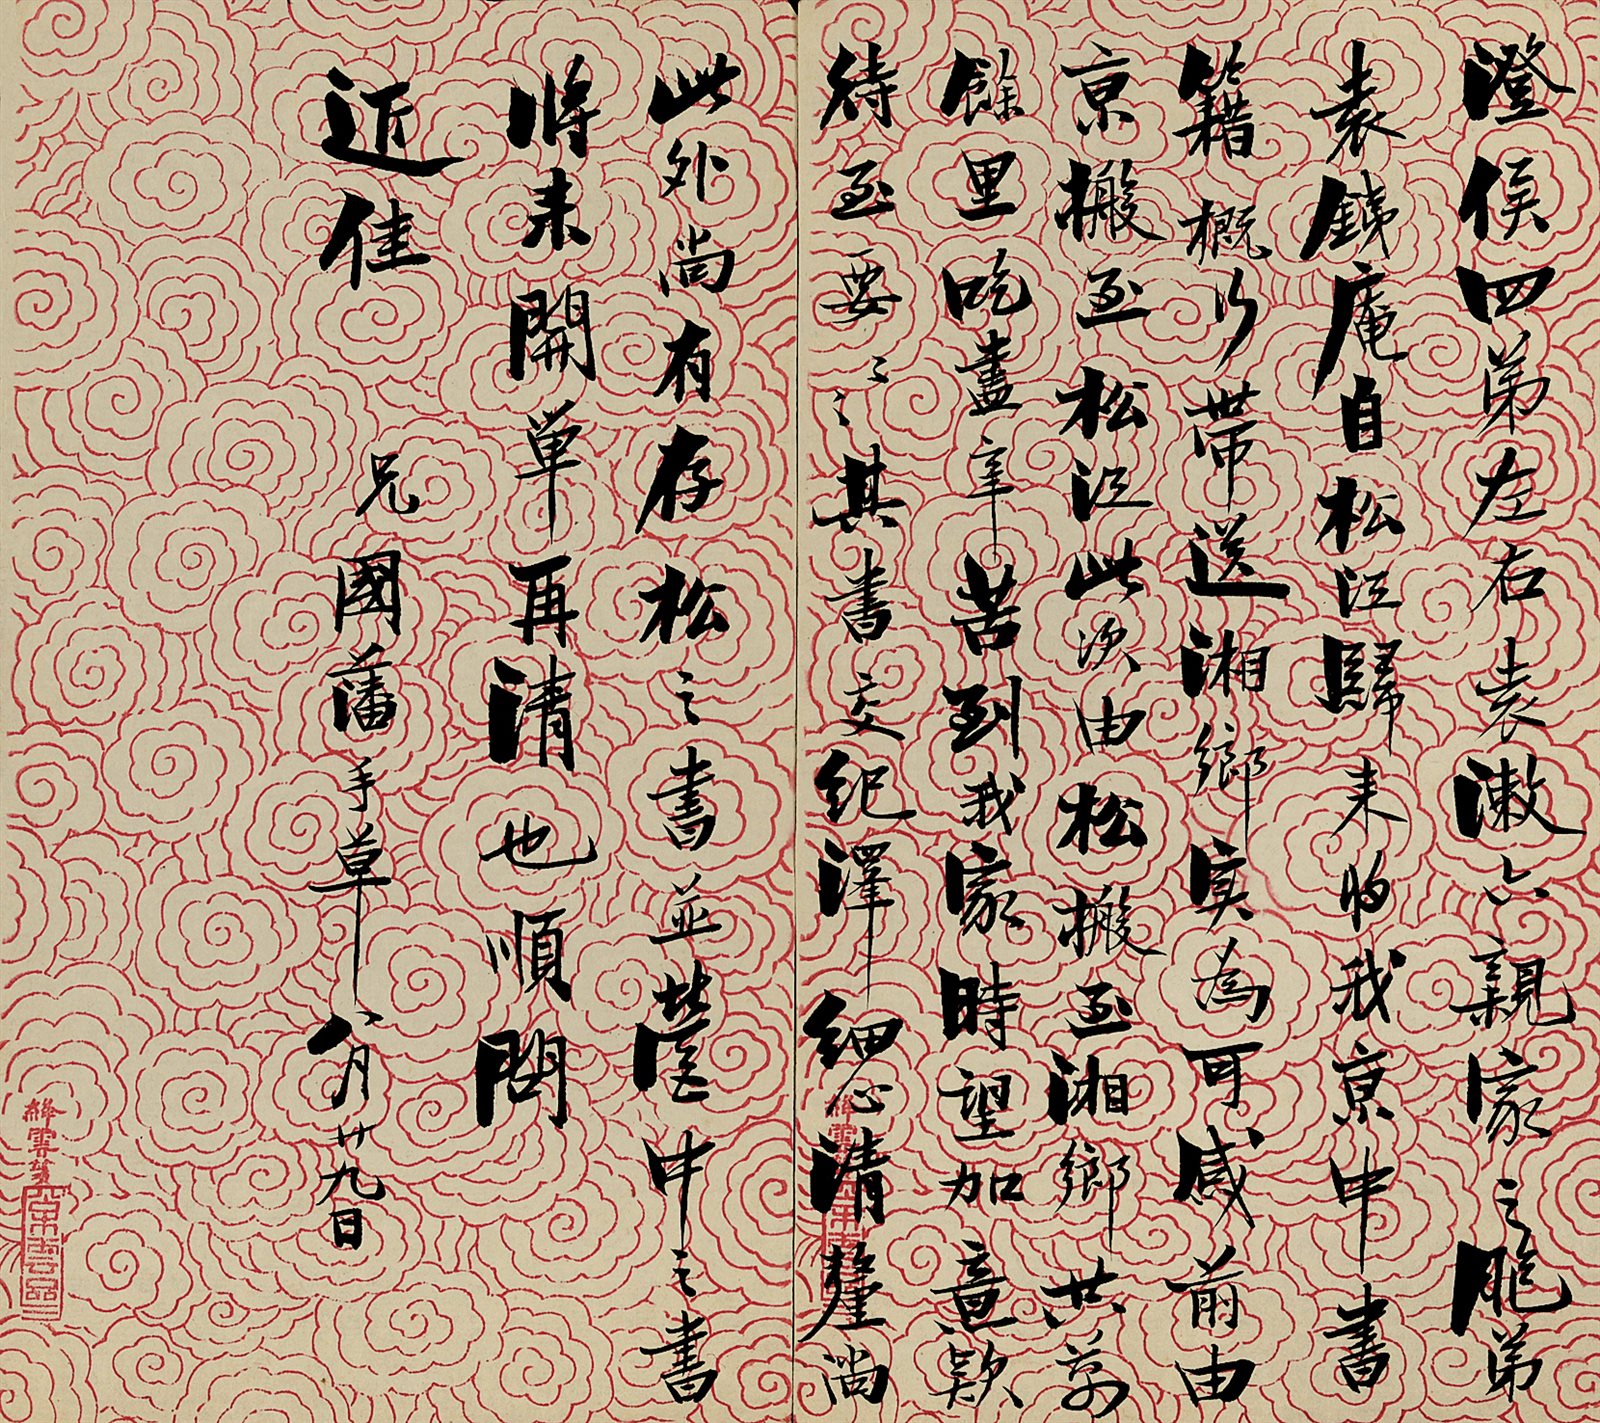 澄侯四弟左右袁漱六親家之胞弟
袁銕庵自松江歸來將我京中書
籍概行帶送湘鄉實為可感前由
京搬至松江此次由松搬至湘鄉共萬
餘里吃盡辛苦到我家時望加意款
待至要〻〻其書交紀澤細心清釐尚
此外尚有存松之書並中之書
將來開單再清也順問
近佳 兄國藩手草 八月廿九日